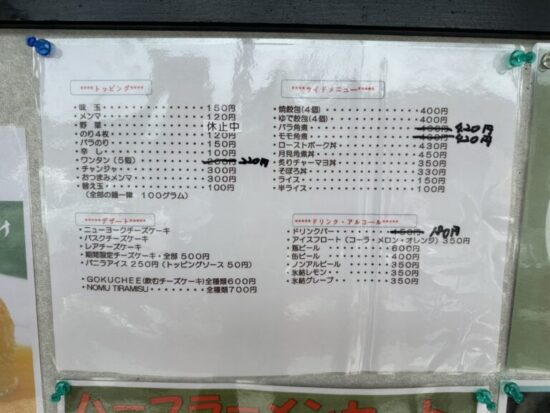 ****トッピング****
・味玉・・・・・・・・・・・・150円
・メンマ・・・・・・・・・・・120円
・野菜 休止中
・のり4枚・・・・・・・・・・120円
・バラのり・・・・・・・・・・150円
・辛し・・・・・・・・・・・・100円
・ワンタン(5個)・・・・・・・200円 220円
・チャンジャ・・・・・・・・・300円
・おつまみメンマ・・・・・・・300円
・替え玉・・・・・・・・・・・100円
(全部の麺一律 100グラム)
****サイドメニュー****
・焼餃包(4個)・・・・・・・・400円
・ゆで餃包(4個)・・・・・・・400円
・バラ角煮・・・・・・・・・・400円 420円
・モモ角煮・・・・・・・・・・400円 420円
・ローストポーク丼・・・・・・430円
・月見角煮丼・・・・・・・・・450円
・炙りチャーマヨ丼・・・・・・350円
・そぼろ丼・・・・・・・・・・330円
・ライス・・・・・・・・・・・150円
・半ライス・・・・・・・・・・100円
*****デザート*****
・ニューヨークチーズケーキ
・バスクチーズケーキ
・レアチーズケーキ
・期間限定チーズケーキ・全部 500円
・バニラアイス 250円(トッピングソース 50円)
・GOKUCHEE(飲むチーズケーキ)全種類600円
・NOMU TIRAMISU・・・・・・・・全種類700円
****ドリンク・アルコール****
・ドリンクバー・・・・・・・・150円 180円
・アイスフロート(コーラ・メロン・オレンジ)350円
・瓶ビール・・・・・・・・・・600円
・缶ビール・・・・・・・・・・400円
・ノンアルビール・・・・・・・350円
・氷結レモン・・・・・・・・・350円
・氷結グレープ・・・・・・・・350円
ハーフラーメンセット